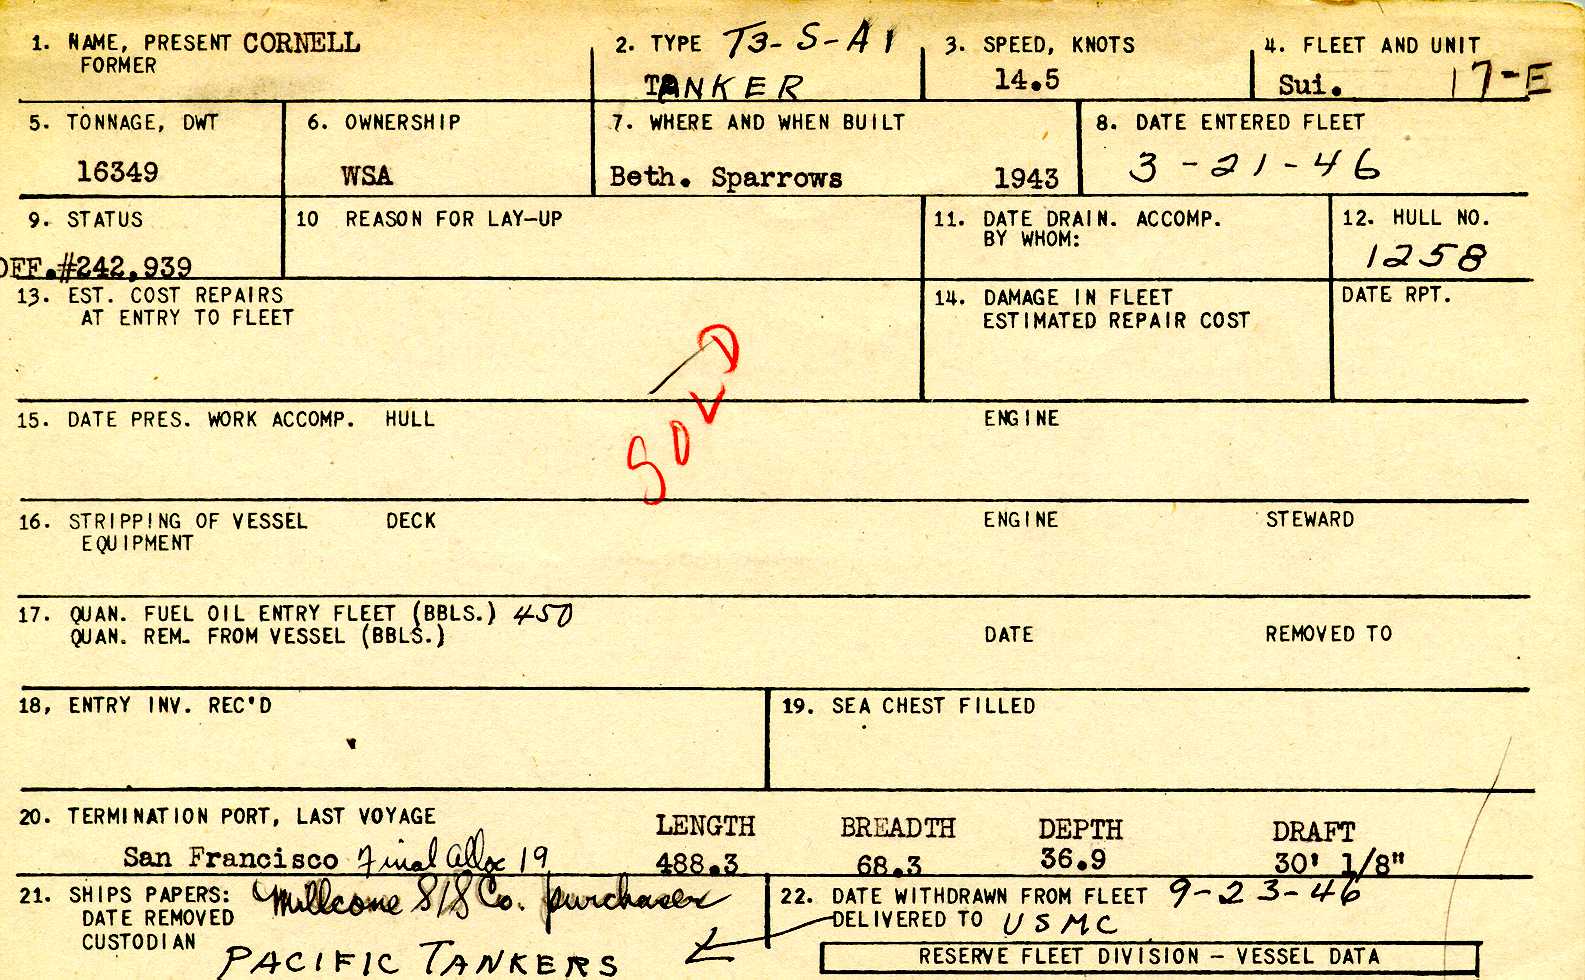 1. NAME, PRESENT CORNELL
FORMER
2. TYPE T3-S-A1
TANKER
3. SPEED, KNOTS
14.5
4. FLEET AND UNIT
Sui. 17-E
5. TONNAGE, DWT
16349
6. OWNERSHIP
WSA
7. WHERE AND WHEN BUILT
Beth. Sparrows 1943
8. DATE ENTERED FLEET
3-21-46
9. STATUS
OFF.#242,939
10 REASON FOR LAY-UP
11. DATE DRAIN. ACCOMP.
BY WHOM:
12. HULL NO.
1258
13. EST. COST REPAIRS
AT ENTRY TO FLEET
14. DAMAGE IN FLEET
ESTIMATED REPAIR COST
DATE RPT.
SOLD
15. DATE PRES. WORK ACCOMP. HULL ENGINE
16. STRIPPING OF VESSEL DECK ENGINE STEWARD
EQUIPMENT
17. QUAN. FUEL OIL ENTRY FLEET (BBLS.) 450
QUAN. REM. FROM VESSEL (BBLS.) DATE REMOVED TO
18, ENTRY INV. REC'D
19. SEA CHEST FILLED
20. TERMINATION PORT, LAST VOYAGE LENGTH BREADTH DEPTH DRAFT
San Francisco Final Alloc 19 488.3 68.3 36.9 30' 1/8"
21. SHIPS PAPERS: Millcome S/S Co. purchaser
DATE REMOVED
CUSTODIAN PACIFIC TANKERS
22. DATE WITHDRAWN FROM FLEET 9-23-46
DELIVERED TO USMC
RESERVE FLEET DIVISION - VESSEL DATA